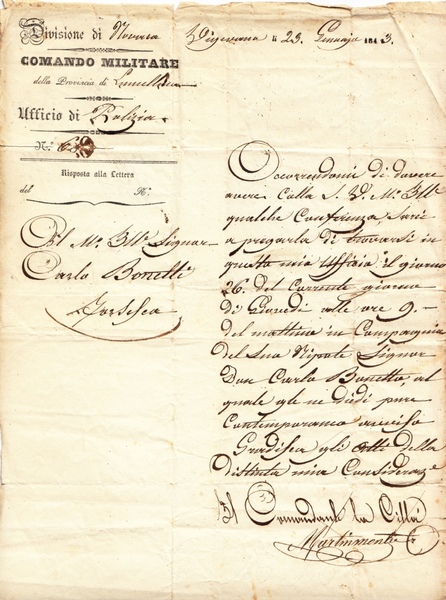 Divisione di Novara
COMANDO MILITARE
della Provincia di Lomellina
Ufficio di Polizia
N.°
Risposta alla Lettera
del N.°
Vigevano li 23. Gennajo 1843.
Al M.° Ill.e Signor
Carlo Bonetti
Occorrendomi di dovere
avere colla S. V. M.° Ill.e
qualche Conferenza, sarei
a pregarla di trovarsi in
questo mio Ufficio il giorno
26. del corrente giorno
di Giovedì alle ore 9.
del mattino in Compagnia
del Suo Nipote Signor
Don Carlo Bonetti, al
quale gle ne diedi pure
Contemporaneo avviso
Gradisca gli Atti della
distinta mia Consideraz.e
Il Comandante la Città